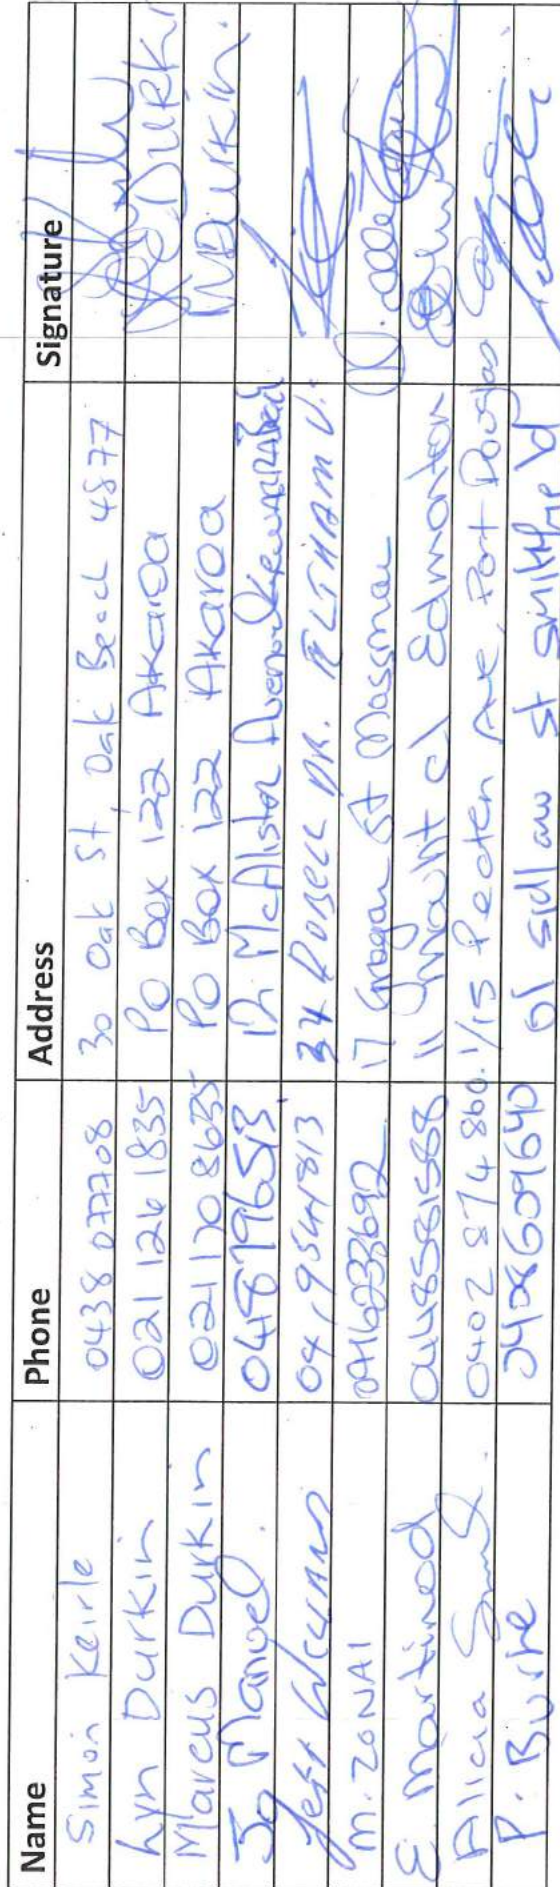 Name Phone Address Signature
Simon Keirle 0438 077708 30 Oak St, Oak Beach 4877
Lyn Durkin 021 126 1835 PO Box 122 Akaroa Durkin
Marcus Durkin 021 170 8635 PO Box 122 Akaroa MDurkin.
Jo Manuel 0487196513 McAlister Avenue
Jeff 34 DR. ELTHAM V.
M. ZONAI 0416233692 17 Grogan St Mossman
E. Martinod 0448581588 11 Edmonton
Alicia 0402 874 860. 1/15 Pecten Ave, Port Douglas
P. Burke 0408609640 61 sidlaw st smithfield